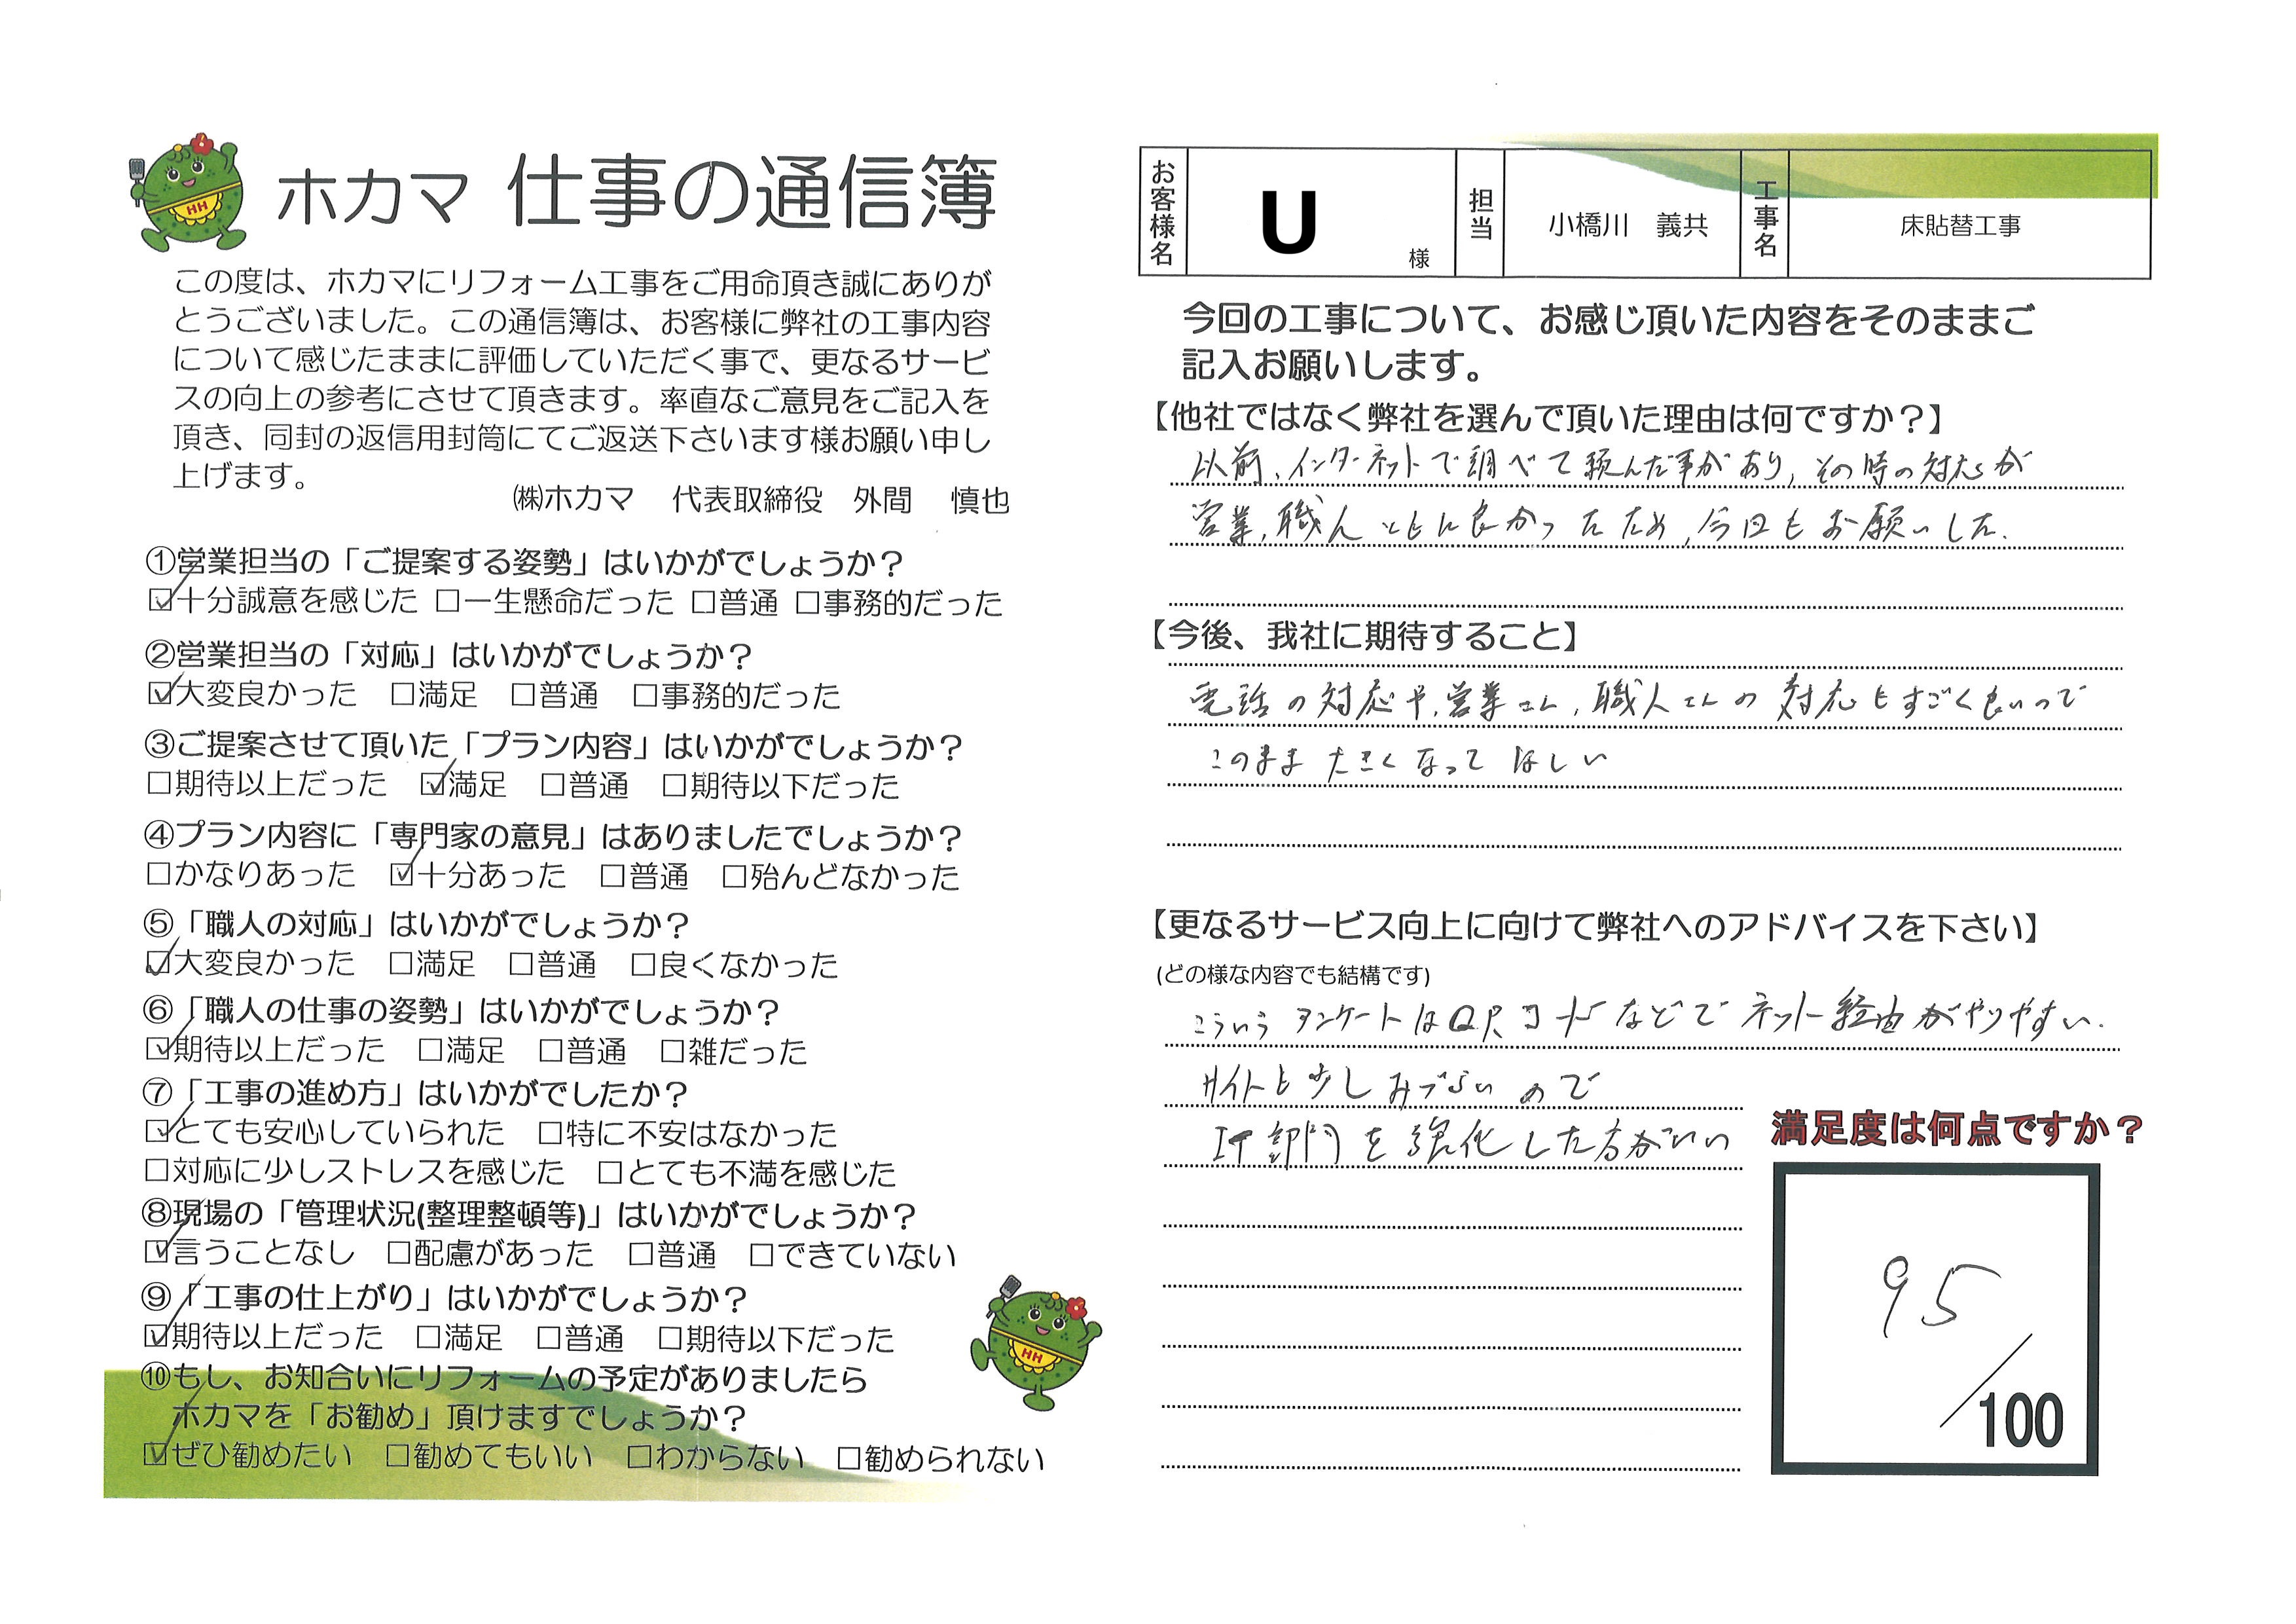 ホカマ 仕事の通信簿
この度は、ホカマにリフォーム工事をご用命頂き誠にありが
とうございました。この通信簿は、お客様に弊社の工事内容
について感じたままに評価していただく事で、更なるサービ
スの向上の参考にさせて頂きます。率直なご意見をご記入を
頂き、同封の返信用封筒にてご返送下さいます様お願い申し
上げます。
㈱ホカマ 代表取締役 外間 慎也
①営業担当の「ご提案する姿勢」はいかがでしょうか？
☑十分誠意を感じた □一生懸命だった □普通 □事務的だった
②営業担当の「対応」はいかがでしょうか？
☑大変良かった □満足 □普通 □事務的だった
③ご提案させて頂いた「プラン内容」はいかがでしょうか？
□期待以上だった ☑満足 □普通 □期待以下だった
④プラン内容に「専門家の意見」はありましたでしょうか？
□かなりあった ☑十分あった □普通 □殆んどなかった
⑤「職人の対応」はいかがでしょうか？
☑大変良かった □満足 □普通 □良くなかった
⑥「職人の仕事の姿勢」はいかがでしょうか？
☑期待以上だった □満足 □普通 □雑だった
⑦「工事の進め方」はいかがでしたか？
☑とても安心していられた □特に不安はなかった
□対応に少しストレスを感じた □とても不満を感じた
⑧現場の「管理状況(整理整頓等)」はいかがでしょうか？
☑言うことなし □配慮があった □普通 □できていない
⑨「工事の仕上がり」はいかがでしょうか？
☑期待以上だった □満足 □普通 □期待以下だった
⑩もし、お知合いにリフォームの予定がありましたら
ホカマを「お勧め」頂けますでしょうか？
☑ぜひ勧めたい □勧めてもいい □わからない □勧められない
HH
HH
お客様名 U 様 担当 小橋川 義共 工事名 床貼替工事
今回の工事について、お感じ頂いた内容をそのままご
記入お願いします。
【他社ではなく弊社を選んで頂いた理由は何ですか？】
以前、インターネットで調べて頼んだ事があり、その時の対応が
営業、職人ともに良かったため、今回もお願いした.
【今後、我社に期待すること】
電話の対応や、営業さん、職人さんの対応もすごく良いので
このまま大きくなってほしい
【更なるサービス向上に向けて弊社へのアドバイスを下さい】
(どの様な内容でも結構です)
こういうアンケートはQRコードなどでネット経由がやりやすい.
サイトも少しみづらいので
IT部門を強化した方がいい
満足度は何点ですか？
95
/100